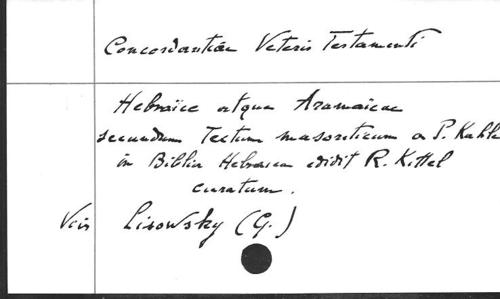 Concordantiae Veteris Testamenti
Hebraïce atque Aramaicae
secundum Textum masoreticum a P. Kahle
in Biblia Hebraica edidit R. Kittel
curatum.
Voir Lisowsky (G.)